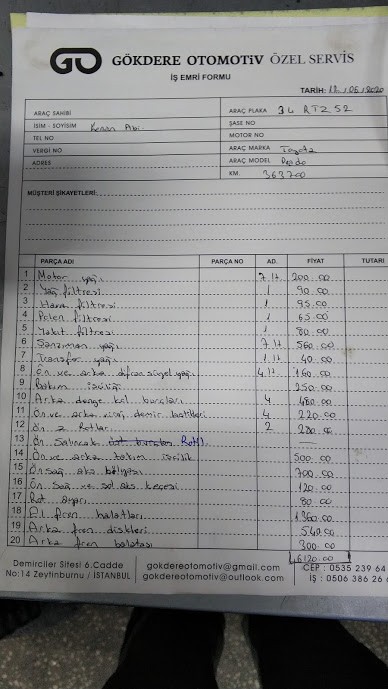 GÖKDERE OTOMOTİV ÖZEL SERVİS
İŞ EMRİ FORMU
TARİH: 12/05/2020
ARAÇ SAHİBİ
İSİM - SOYİSİM Kenan Abi
TEL NO
VERGİ NO
ADRES
ARAÇ PLAKA 34 RTZ 52
ŞASE NO
MOTOR NO
ARAÇ MARKA Toyota
ARAÇ MODEL Prado
KM. 363700
MÜŞTERİ ŞİKAYETLERİ:
PARÇA ADI PARÇA NO AD. FİYAT TUTARI
1 Motor yağı 7 lt 200.00
2 Yağ filtresi 1 90.00
3 Hava filtresi 1 95.00
4 Polen filtresi 1 65.00
5 Yakıt filtresi 1 80.00
6 Şanzıman yağı 7 lt 560.00
7 Transfer yağı 1 lt 40.00
8 Ön ve arka difransiyel yağı 4 lt 160.00
9 Bakım işçiliği 350.00
10 Arka denge kol burçları 4 480.00
11 Ön ve arka viraj demir lastikleri 4 220.00
12 Ön z Rotlar 2 280.00
13 Ön Salıncak Rotil —
14 Ön ve arka takım işçilik 500.00
15 Ön sağ aks bilyası 700.00
16 Ön sağ ve sol aks keçesi 120.00
17 Rot ayarı 80.00
18 El fren halatları 1360.00
19 Arka fren diskleri 540.00
20 Arka fren balatası 300.00
Demirciler Sitesi 6.Cadde
No:14 Zeytinburnu / İSTANBUL
gokdereotomotiv@gmail.com
gokdereotomotiv@outlook.com
CEP : 0535 239 64
İŞ : 0506 386 26